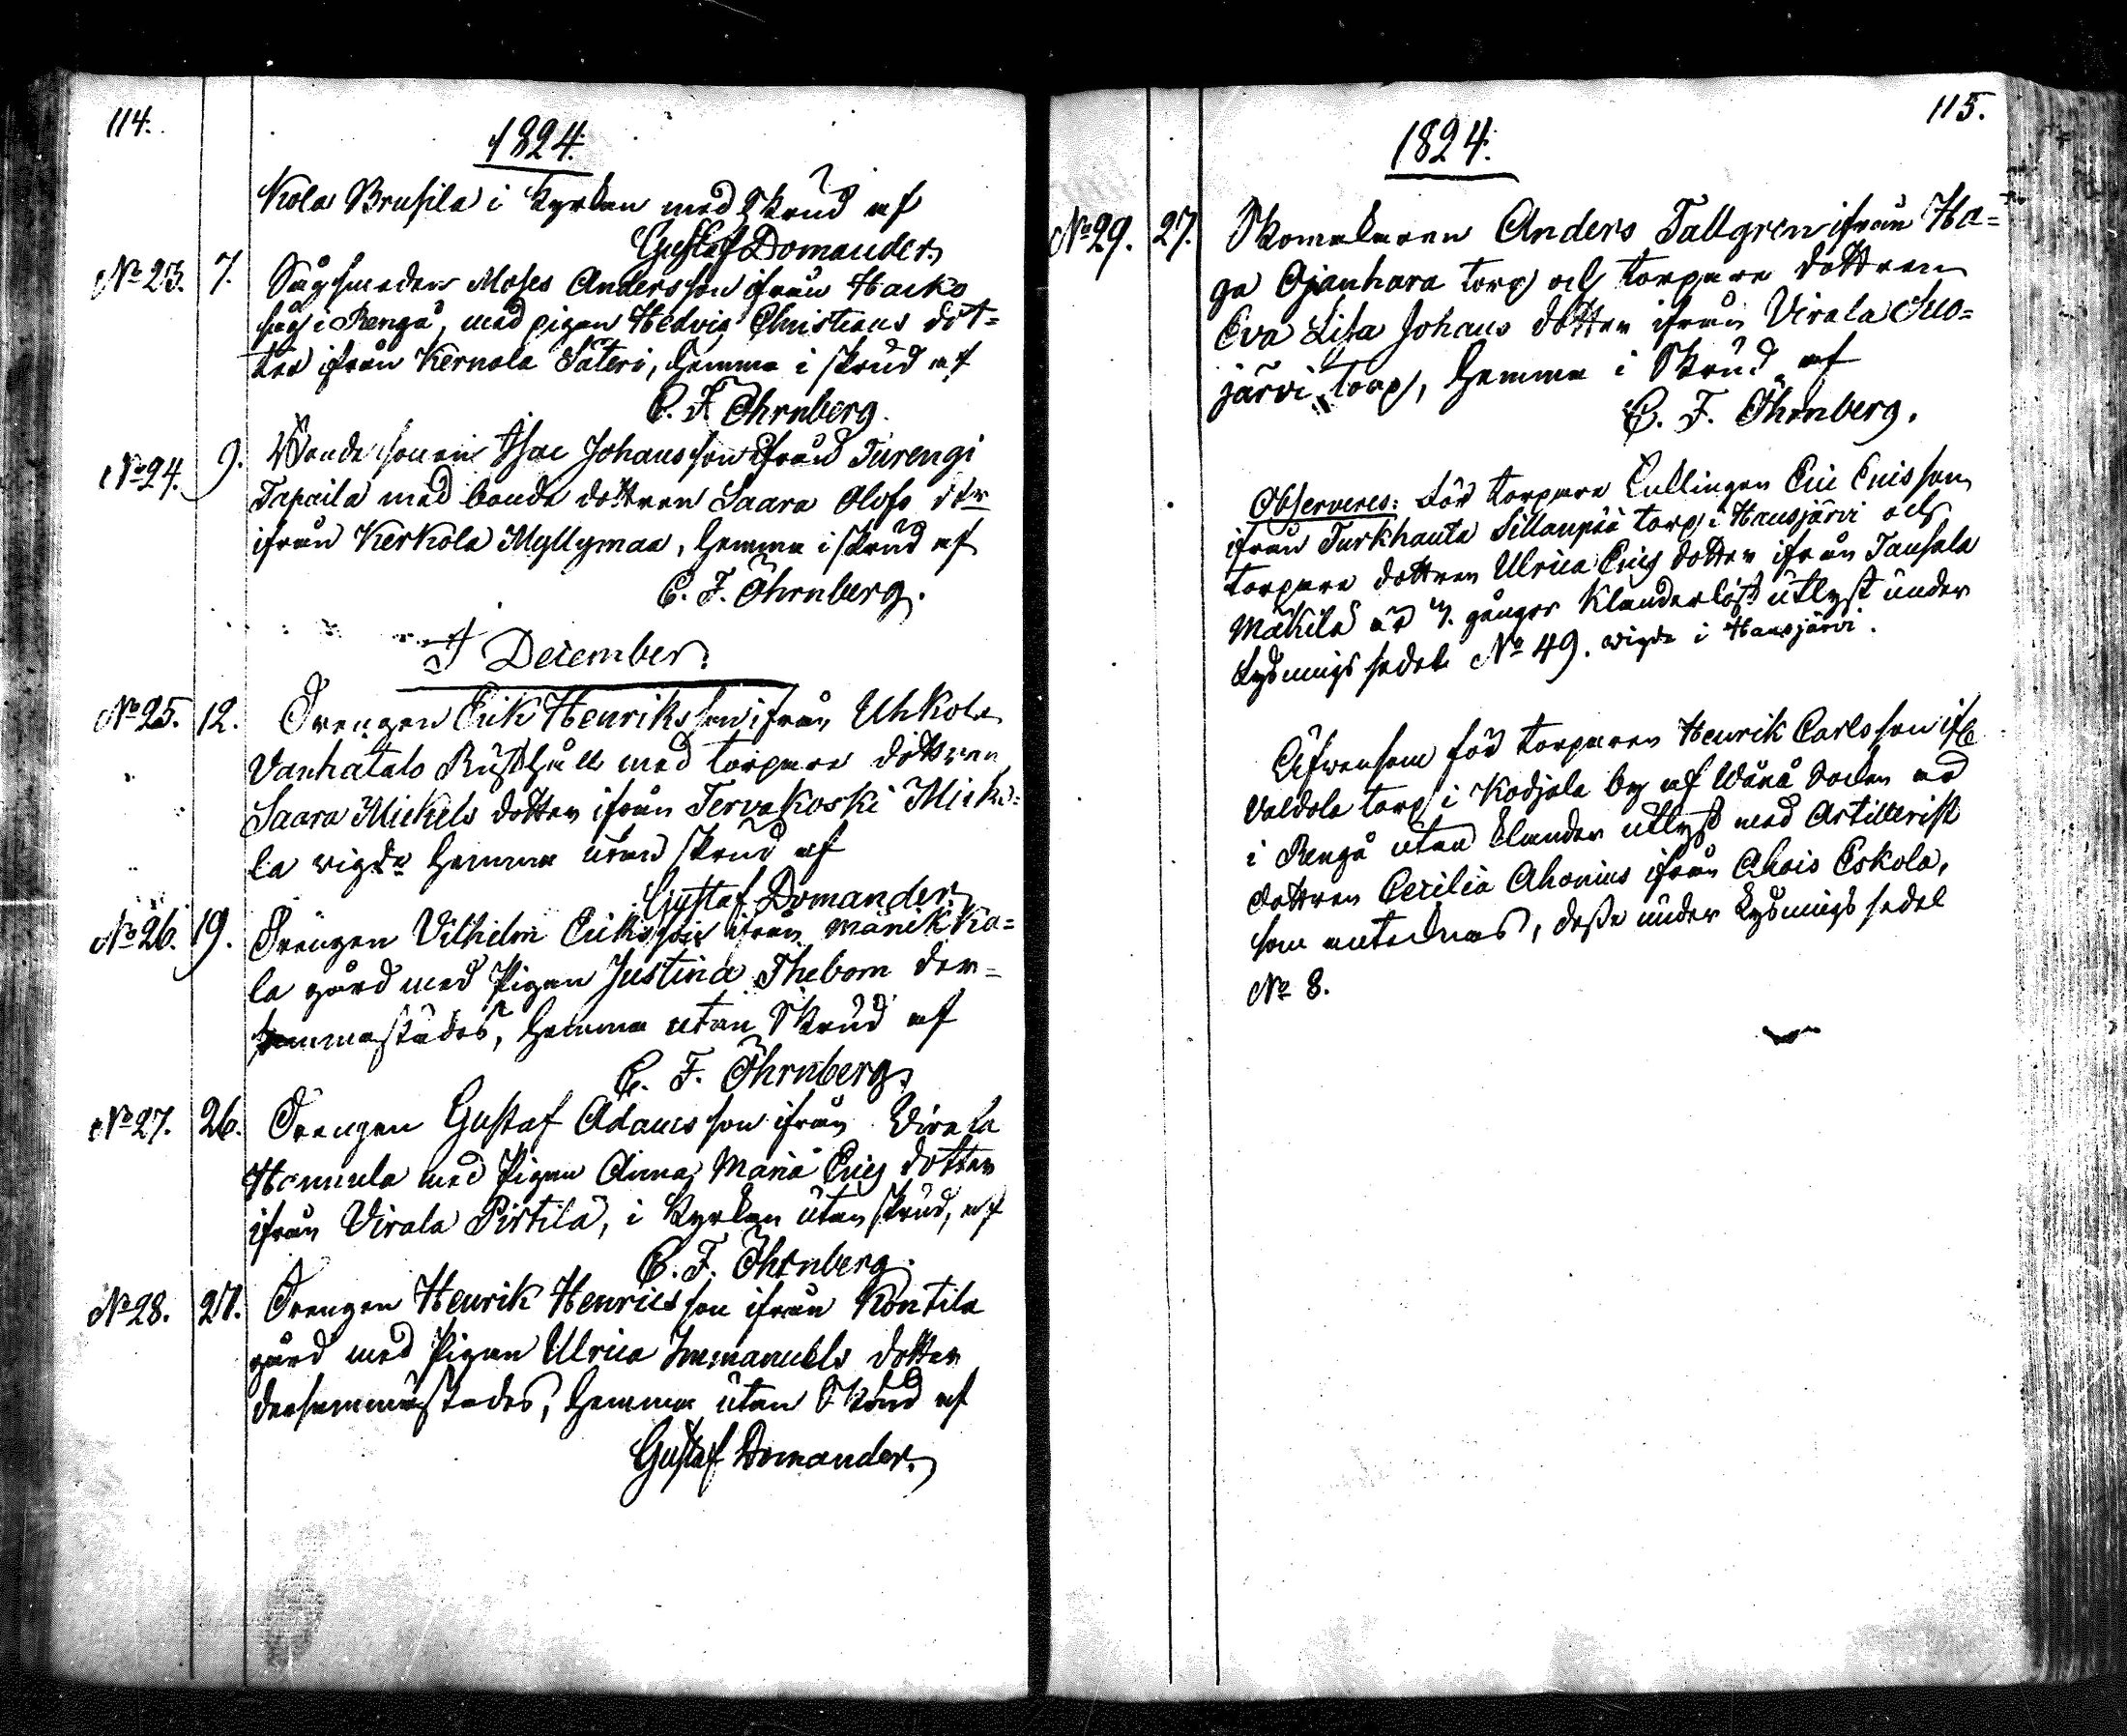 114.
1824.
Kola Brusila i Kyrkan med Skrud af
Gustaf Domander.
No 23. 7. Sågsmeden Moses Andersson ifrån Hacko
såg i Rengå, med pigan Hedvig Christians dot=
ter ifrån Kernala Säteri, hemma i skrud af
C. F. Öhrnberg.
No 24. 9. Bonde sonen Isac Johansson ifrån Turengi
Tapaila med bonde dottren Saara Olofs dtr
ifrån Kerkola Myllymaa, hemma i skrud af
C. F. Öhrnberg.
I December.
No 25. 12. Drengen Erik Henriksson ifrån Uhkola
Vanhatalo Rusthåll med torpare dottren
Saara Mickels dotter ifrån Tervakoski Micko=
la vigde hemma utan skrud af
Gustaf Domander.
No 26. 19. Drengen Vilhelm Eriksson ifrån Mänikkö=
la gård med Pigan Justina Thebom der=
sammastädes, hemma utan Skrud af
C. F. Öhrnberg.
No 27. 26. Drengen Gustaf Adamsson ifrån Virala
Hommala med Pigan Anna Maria Erics dotter
ifrån Virala Pirtila, i Kyrkan utan skrud, af
C. F. Öhrnberg.
No 28. 27. Drengen Henrik Henricsson ifrån Kontila
gård med Pigan Ulrica Immanuels dotter
dersammastedes, hemma utan Skrud af
Gustaf Domander.
115.
1824.
No 29. 27. Skomakaren Anders Tallgren ifrån Ha=
ga Ojanhara torp och torpare dottren
Eva Lisa Johans dotter ifrån Virala Suo=
järvi torp, hemma i Skrud af
C. F. Öhrnberg.
Observeres: För torpare Enklingen Eric Ericsson
ifrån Turkhauta Sillanpää torp i Hausjärvi och
torpare dottren Ulrica Erics dotter ifrån Tausala
Mäkilä är 3. gånger klanderlöst utlyst under
Lysnings sedel No 49. vigde i Hausjärvi.
Äfvensom för torparen Henrik Carlsson
Valdola torp i Kodjala by af Wånå Socken
i Rengå utan klander utlyst med Artillerist
dottren Cecilia Ahonius ifrån Ahois Eskola,
som antecknas, desse under Lysnings sedel
No 8.